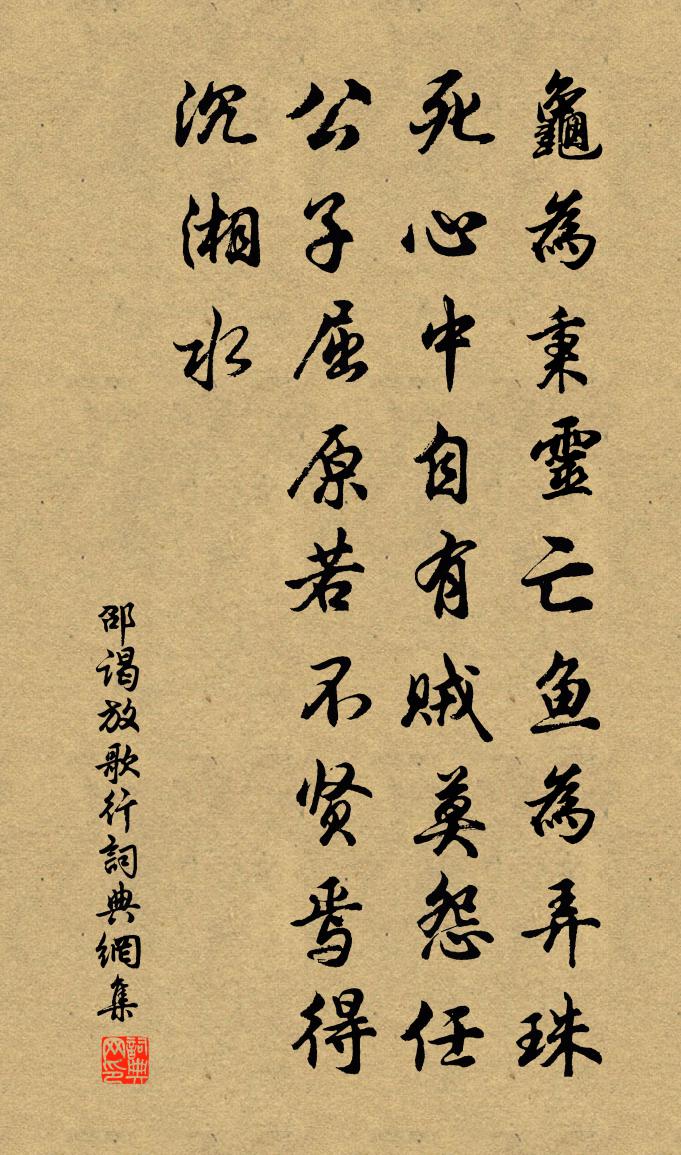 龜為秉靈亡鱼為弄珠
死心中自有贼莫怨任
公子屈原若不贤焉得
沉湘水
邵谒放歌行詞典網集
詞典网印